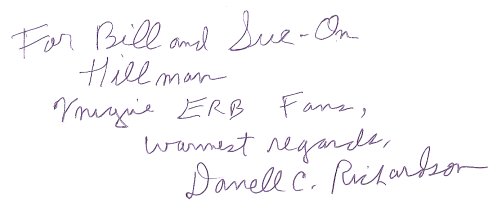 For Bill and Sue-On
Hillman
Unique ERB Fans,
warmest regards,
Darrell C. Richardson